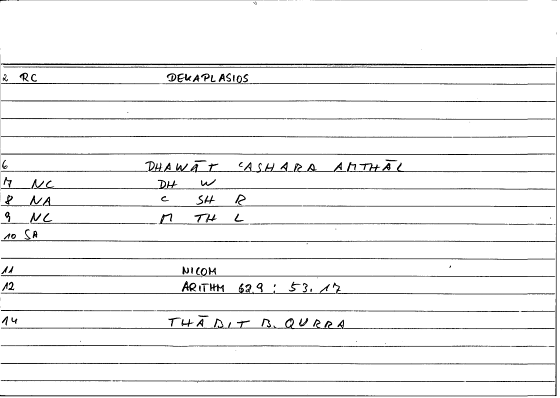 2 RC DEKAPLASIOS
6 DHAWĀT ʿASHARA AMTHĀL
7 NC DH W
8 NA ʿ SH R
9 NC M TH L
10 SA
11 NICOM
12 ARITHM 62.9 : 53.17
14 THĀBIT B. QURRA